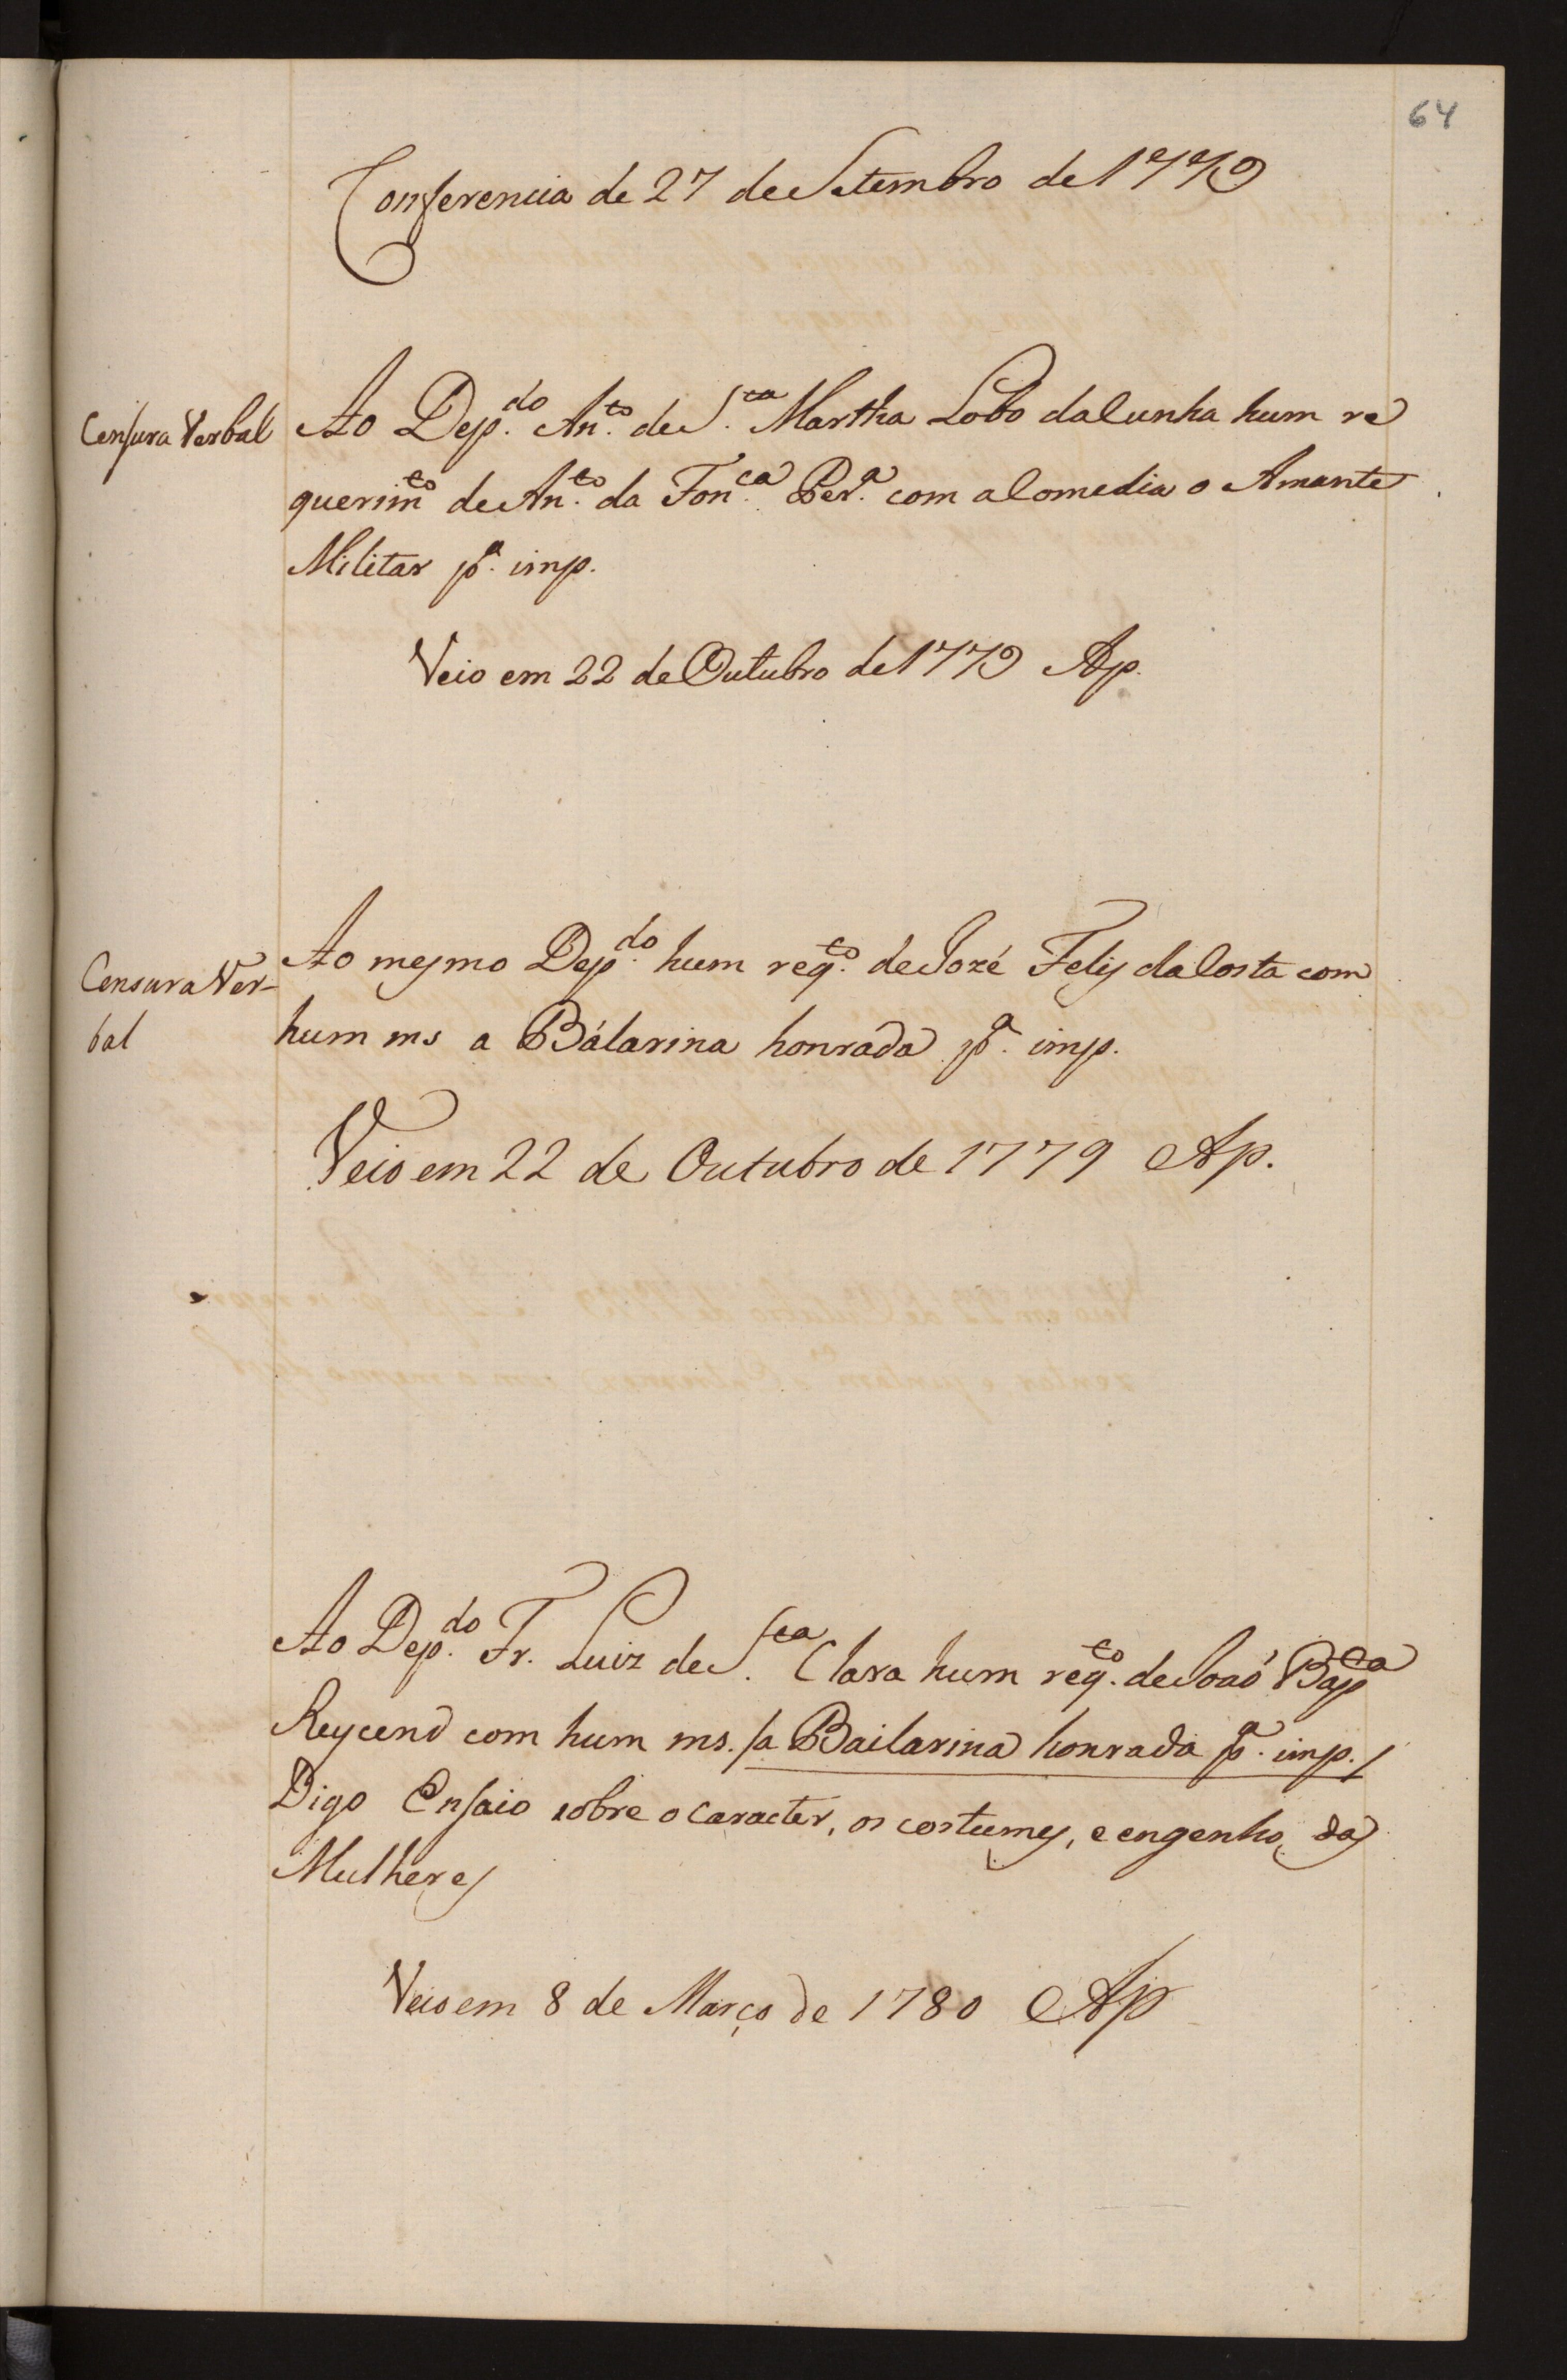 64
Conferencia de 27 de Setembro de 1779
Censura Verbal
Ao Dep.do An.to de S.ta Martha Lobo da Cunha hum re
querim.to de An.to da Fon.ca Per.a com a Comedia o Amante
Militar p.a imp.
Veio em 22 de Outubro de 1779 Ap.
Censura Ver-
bal
Ao mesmo Dep.do hum req.to de Jozé Felis da Costa com
hum ms a Bálarina honrada p.a imp.
Veio em 22 de Outubro de 1779 Ap.
Ao Dep.do Fr. Luiz de S.ta Clara hum req.to de Joaõ Bap.ta
Reycend com hum ms. /a Bailarina honrada p.a imp./
Digo Ensaio sobre o Caracter, os costumes, e engenho das
Mulheres
Veio em 8 de Março de 1780 Ap